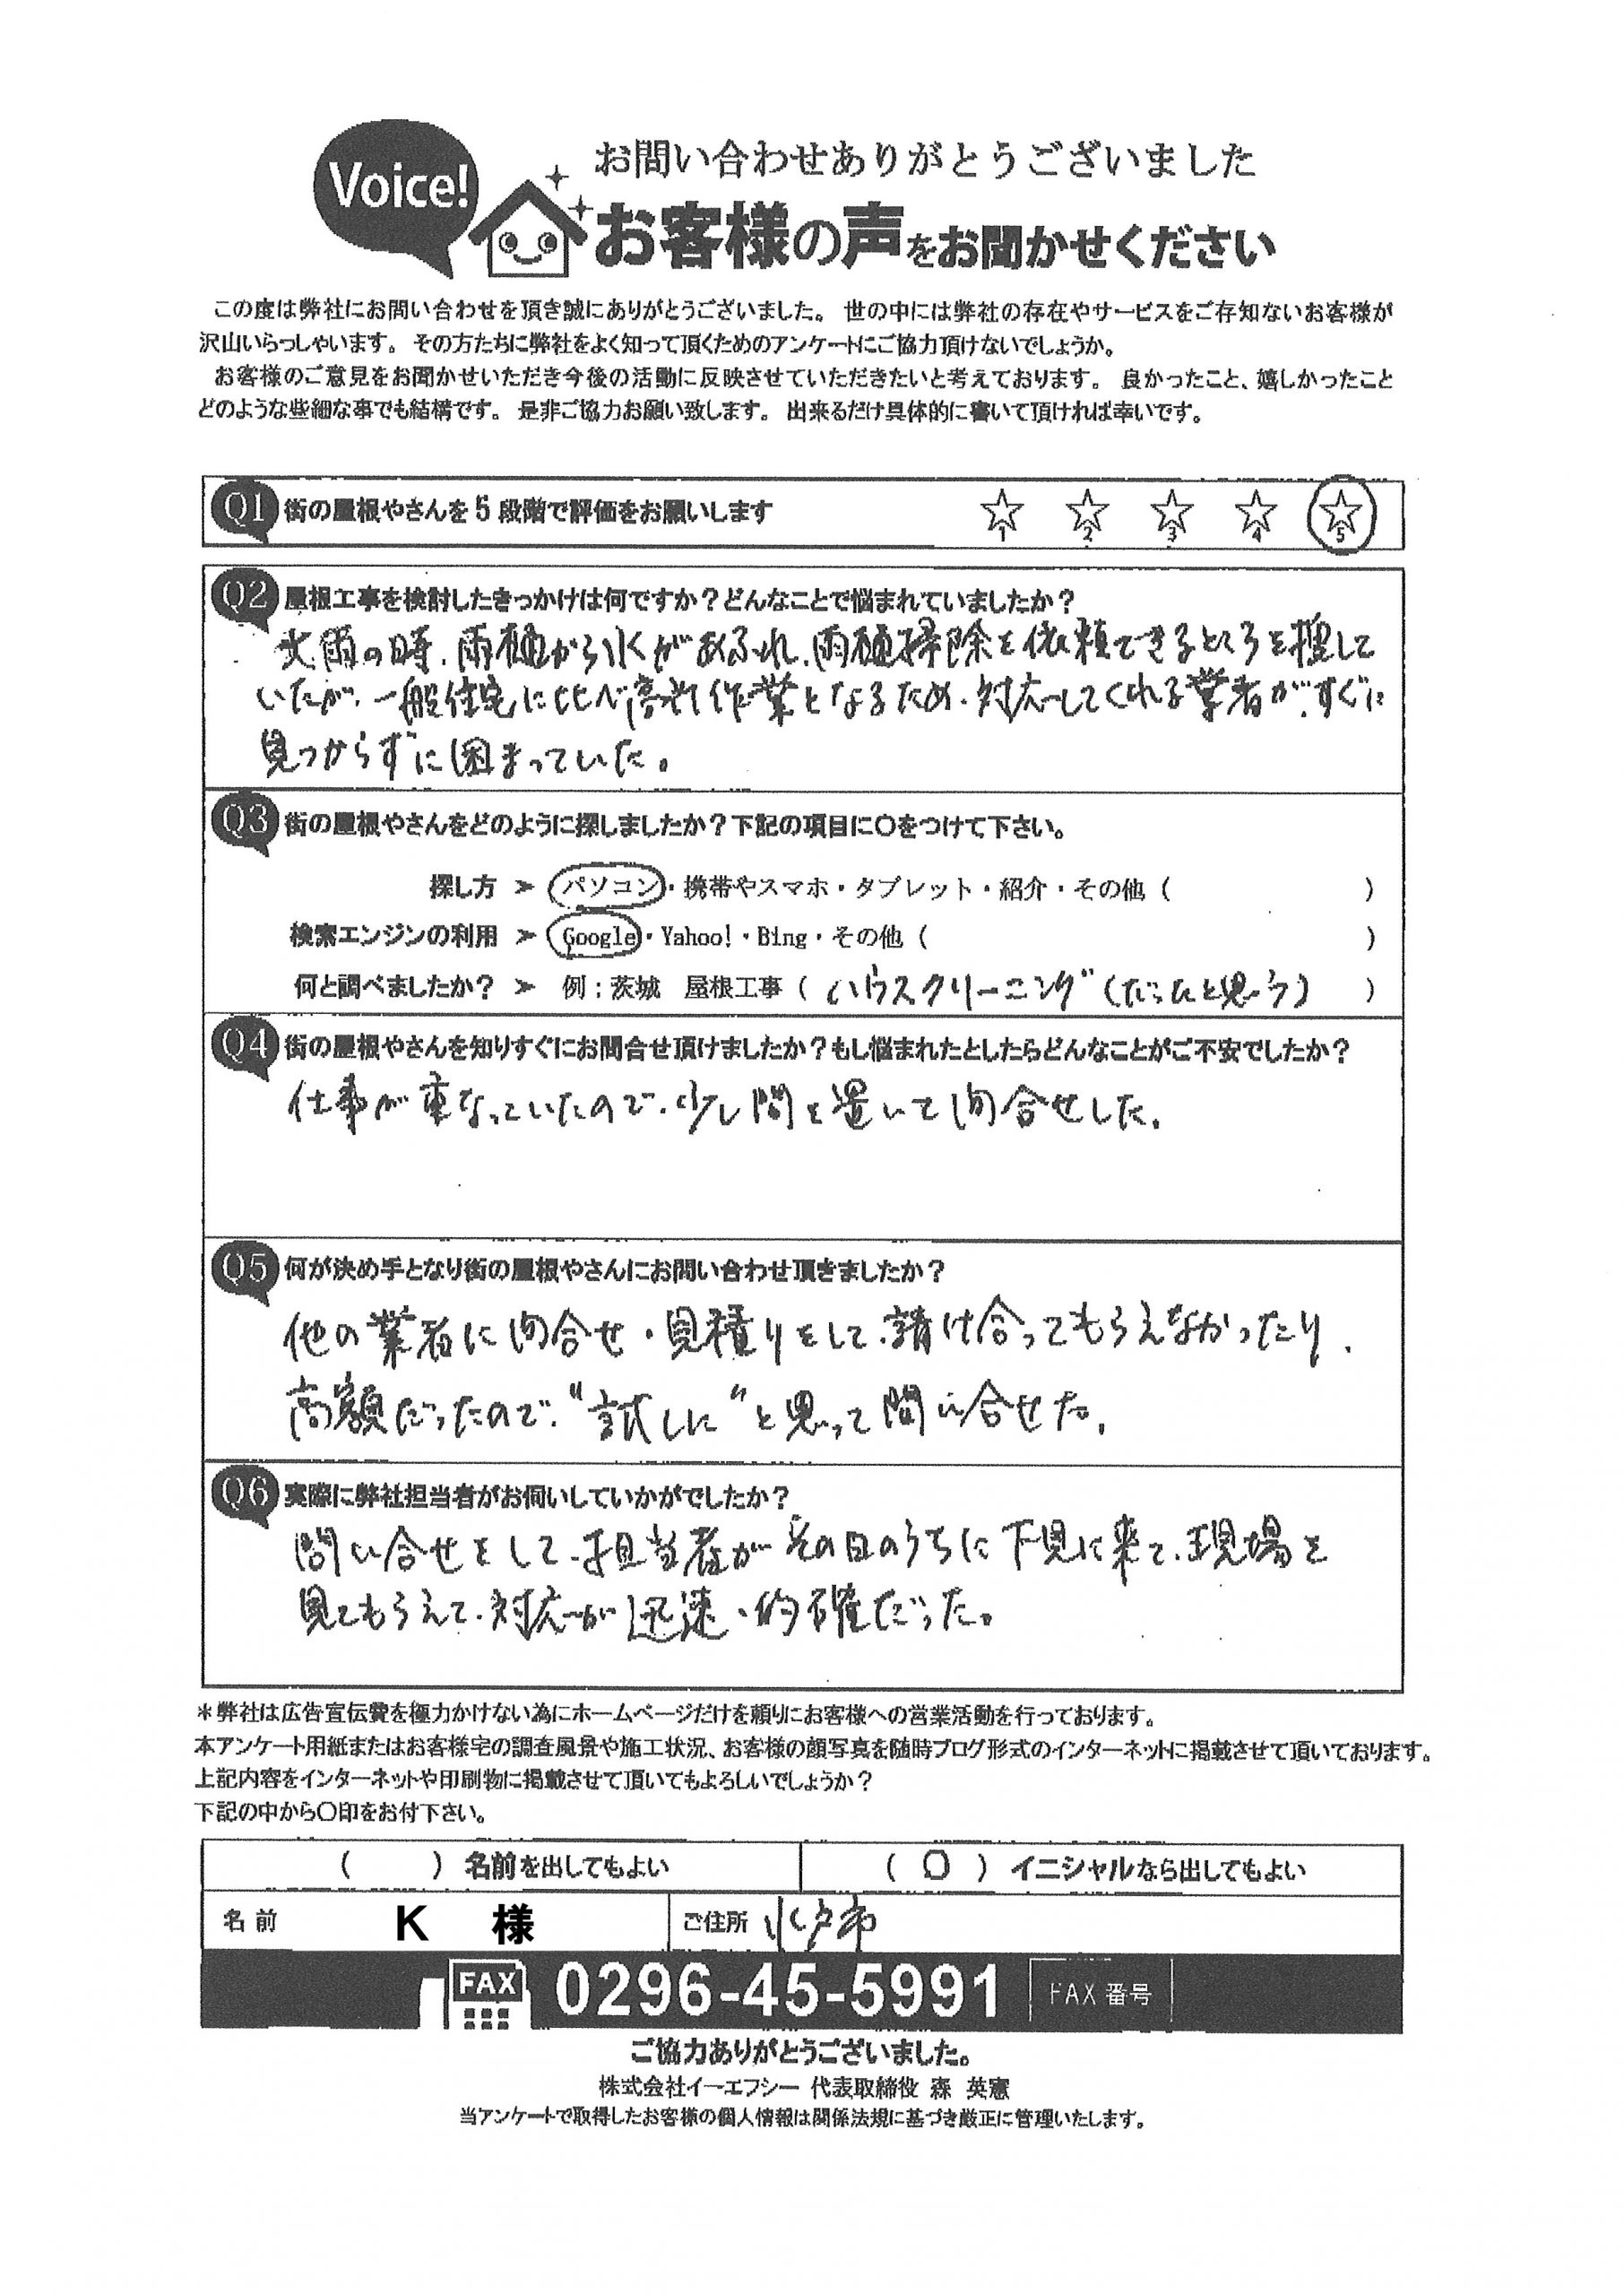 Voice!
お問い合わせありがとうございました
お客様の声をお聞かせください
この度は弊社にお問い合わせを頂き誠にありがとうございました。世の中には弊社の存在やサービスをご存知ないお客様が
沢山いらっしゃいます。その方たちに弊社をよく知って頂くためのアンケートにご協力頂けないでしょうか。
お客様のご意見をお聞かせいただき今後の活動に反映させていただきたいと考えております。良かったこと、嬉しかったこと
どのような些細な事でも結構です。是非ご協力お願い致します。出来るだけ具体的に書いて頂ければ幸いです。
Q1 街の屋根やさんを5段階で評価をお願いします ☆1 ☆2 ☆3 ☆4 ☆5
Q2 屋根工事を検討したきっかけは何ですか？どんなことで悩まれていましたか？
大雨の時、雨樋から水があふれ、雨樋掃除を依頼できるところを探して
いたが、一般住宅に比べ高所作業となるため、対応してくれる業者がすぐに
見つからずに困まっていた。
Q3 街の屋根やさんをどのように探しましたか？下記の項目に〇をつけて下さい。
探し方 ➢ パソコン・携帯やスマホ・タブレット・紹介・その他（ ）
検索エンジンの利用 ➢ Google・Yahoo!・Bing・その他（ ）
何と調べましたか？ ➢ 例：茨城 屋根工事（ ハウスクリーニング（だったと思う） ）
Q4 街の屋根やさんを知りすぐにお問合せ頂けましたか？もし悩まれたとしたらどんなことがご不安でしたか？
仕事が重なっていたので、少し間を置いて問合せした。
Q5 何が決め手となり街の屋根やさんにお問い合わせ頂きましたか？
他の業者に問合せ・見積りをして、請け合ってもらえなかったり、
高額だったので、“試しに”と思って問い合せた。
Q6 実際に弊社担当者がお伺いしていかがでしたか？
問い合せをして、担当者がその日のうちに下見に来て、現場を
見てもらえて、対応が迅速・的確だった。
＊弊社は広告宣伝費を極力かけない為にホームページだけを頼りにお客様への営業活動を行っております。
本アンケート用紙またはお客様宅の調査風景や施工状況、お客様の顔写真を随時ブログ形式のインターネットに掲載させて頂いております。
上記内容をインターネットや印刷物に掲載させて頂いてもよろしいでしょうか？
下記の中から〇印をお付下さい。
（ ）名前を出してもよい （ 〇 ）イニシャルなら出してもよい
名前 K 様 ご住所 水戸市
FAX 0296-45-5991 FAX番号
ご協力ありがとうございました。
株式会社イーエフシー 代表取締役 森 英憲
当アンケートで取得したお客様の個人情報は関係法規に基づき厳正に管理いたします。